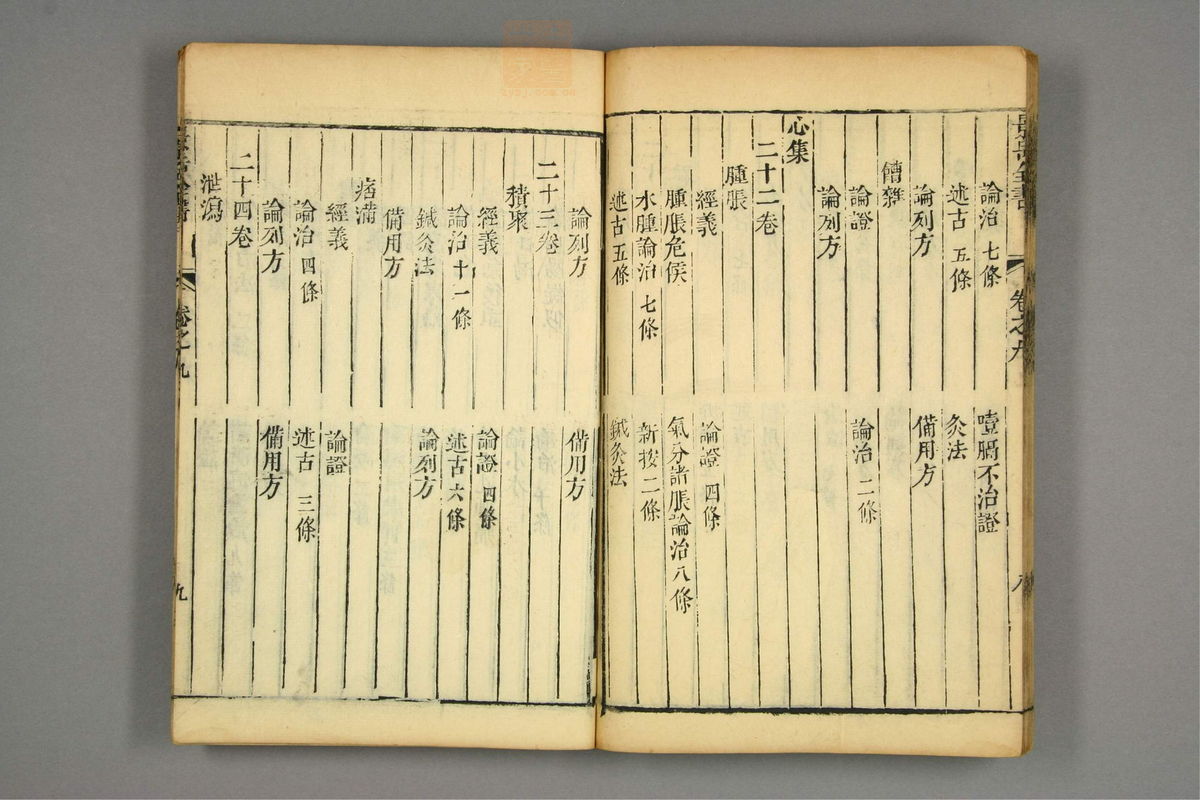 論治 七條 噎膈不治證
述古 五條 灸法
論列方 備用方
饐雜
論證 論治 二條
論列方
心集
二十二卷
腫脹
經義 論證 四條
腫脹危候 氣分諸脹論治 八條
水腫論治 七條 新按 二條
述古 五條 鍼灸法
卷之九
八
論列方 備用方
二十三卷
積聚
經義 論證 四條
論治 十一條 述古 六條
鍼灸法 論列方
備用方
痞滿
經義 論證
論治 四條 述古 三條
論列方 備用方
二十四卷
泄瀉
卷之九
九